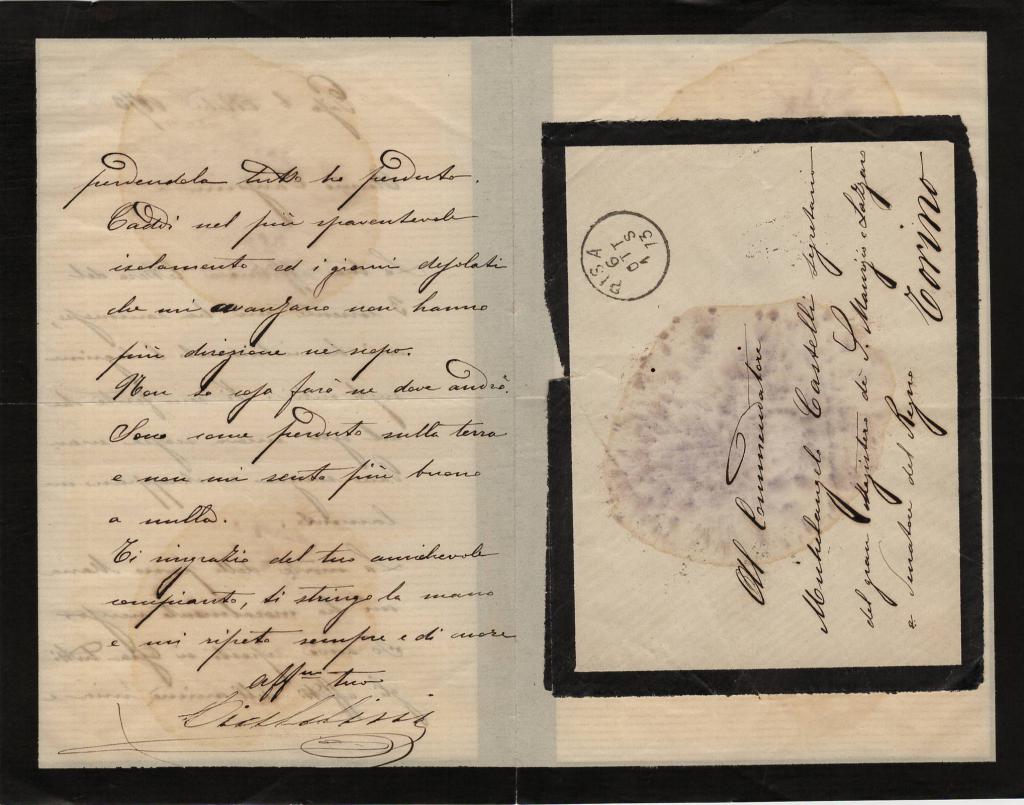 perdendola tutto ho perduto.
Caddi nel più spaventevole
isolamento ed i giorni desolati
che mi avanzano non hanno
più direzione ne scopo.
Non so cosa farò ne dove andrò.
Sono come perduto sulla terra
e non mi sento più buono
a nulla.
Ti ringrazio del tuo amichevole
compianto, ti stringo la mano
e mi ripeto sempre e di cuore
affmo tuo
PISA
6 T
OTS
73
Al Commendatore
Michelangelo Castelli segretario
del gran Magistero di S. Maurizio e Lazzaro
e Senatore del Regno
Torino